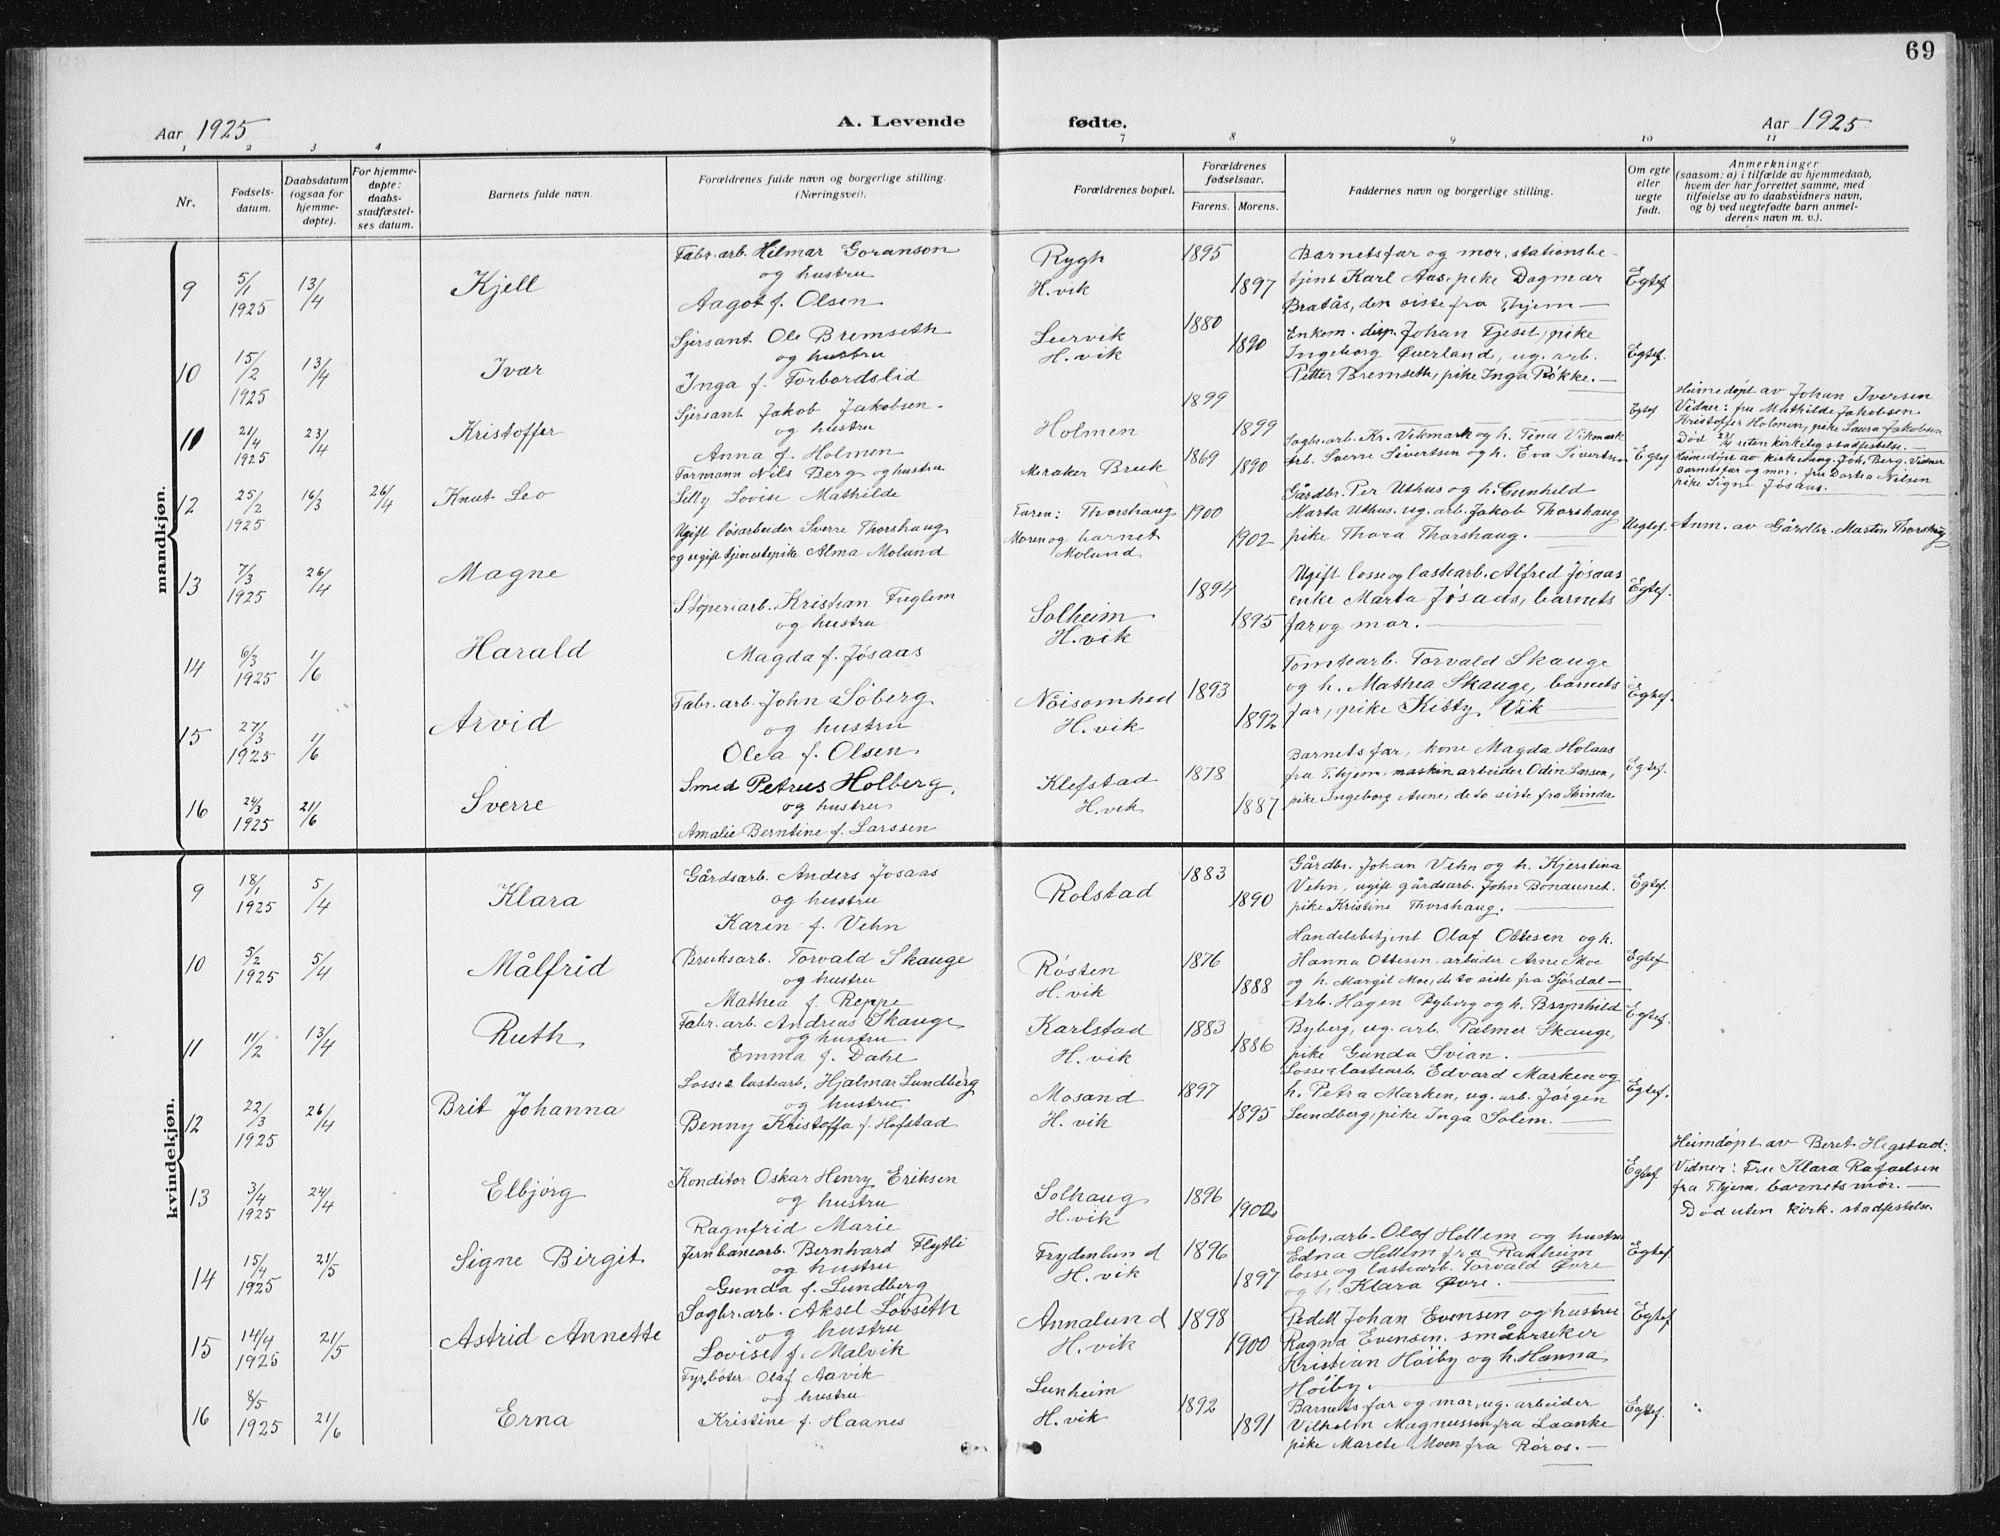 69
Aar 1925
A. Levende fødte.
Aar 1925
1 2 3 4 7 8 9 10 11
Nr.
Fødsels-
datum.
Daabsdatum
(ogsaa for
hjemme-
døpte).
For hjemme-
døpte:
daabs-
stadfæstel-
ses datum.
Barnets fulde navn.
Forældrenes fulde navn og borgerlige stilling.
(Næringsvei).
Forældrenes bopæl.
Forældrenes
fødselsaar.
Farens. Morens.
Faddernes navn og borgerlige stilling.
Om egte
eller
uegte
født.
Anmerkninger
(saasom: a) i tilfælde av hjemmedaab,
hvem der har forrettet samme, med
tilføielse av to daabsvidners navn,
og b) ved uegtefødte barn anmel-
derens navn m. v.).
mandkjøn.
9
5/1
1925
13/4
Kjell
Fabr.arb. Hilmar Goranson
og hustru
Aagot f. Olsen
Rygh
H.vik
1895
1897
Barnets far og mor, stationsbe-
tjent Karl Aas, pike Dagmar
Bratås, den siste fra Thjem
Egtef.
10
15/2
1925
13/4
Ivar
Sjersant Ole Bremseth
og hustru
Inga f. Forbordslid
Leervik
H.vik
1880
1890
Enkem. disp. Johan Fjesel, pike
Ingeborg Øverland, ug. arb.
Petter Bremseth, pike Inga Røkke.
Egtef.
11
21/4
1925
23/4
Kristoffer
Sjersant Jakob Jakobsen
og hustru
Anna f. Holmen
Holmen
1899
1899
Egtef
Heimedøpt av Johan Iversen
Vidner: fru Mathilde Jakobsen
Kristoffer Holmen, pike Laura Jakobsen
Død 23/4 uten kirkelig stadfestelse.
12
25/2
1925
16/3
26/4
Knut Leo
Formann Nils Berg og hustru
Lilly Lovise Mathilde
Meraker Bruk
1869
1890
Sagbr.arb. Kr. Vikmark og h. Tina Vikmark
arb. Sverre Sivertsen og h. Eva Sivertsen
Egtef
Heimedøpt av kirkesang. Joh. Berg. Vidner
Barnets far og mor, fru Dortea Nilsen
pike Signe Jøsaas.
13
7/3
1925
26/4
Magne
Ugift løsarbeider Sverre Thorshaug
og ugift tjenestepike Alma Molund
Faren: Thorshaug
Moren og barnet
Molund
1900
1902
Gårdbr. Per Uthus og h. Gunhild
Marta Uthus, ug. arb. Jakob Thorshaug
pike Thora Thorshaug.
Uegtef.
Anm. av Gårdbr. Martin Thorshaug
14
6/3
1925
1/6
Harald
Støperiarb. Kristian Fuglem
og hustru
Magda f. Jøsaas
Solheim
H.vik
1894
1895
Ugift losse og lastearb. Alfred Jøsaas
enke Marta Jøsaas, barnets
far og mor.
Egtef.
15
27/3
1925
1/6
Arvid
Fabr.arb. John Søberg
og hustru
Olea f. Olsen
Nøisomhed
H.vik
1893
1892
Tomtearb. Torvald Skauge
og h. Mathea Skauge, barnets
far, pike Kitty Vik
Egtef.
16
24/3
1925
21/6
Sverre
Smed Petrus Holberg,
og hustru
Amalie Berntine f. Larssen
Klefstad
H.vik
1878
1887
Barnets far, kone Magda Holaas
fra Thjem, maskinarbeider Odin Larsen,
pike Ingeborg Aune, de to siste fra
Egtef.
kvindekjøn.
9
18/1
1925
5/4
Klara
Gårdsarb. Anders Jøsaas
og hustru
Karen f. Vehn
Rolstad
1883
1890
Gårdbr. Johan Vehn og h. Kjerstina
Vehn, ugift gårdsarb. John Bonaunet.
pike Kristine Thorshaug.
Egtef.
10
5/2
1925
5/4
Målfrid
Bruksarb. Torvald Skauge
og hustru
Mathea f. Reppe
Røsten
H.vik
1876
1888
Handelsbetjent Olaf Ottesen og h.
Hanna Ottesen, arbeider Arne Moe
og h. Margit Moe, de to siste fra Stjørdal
Egtef
11
11/2
13/4
Ruth
Fabr.arb. Andreas Skauge
og hustru
Emma f. Dahl
Karlstad
H.vik
1883
1886
Arb. Hagen Byberg og h. Brynhild
Byberg, ug. arb. Palmer Skauge,
pike Gunda Svian.
Egtef.
12
22/3
1925
26/4
Brit Johanna
Losse & lastearb. Hjalmar Lundberg
og hustru
Benny Kristoffa f. Hofstad
Mosand
H.vik
1897
1895
Losse & lastearb. Edvard Marken og
h. Petra Marken, ug. arb. Jørgen
Lundberg, pike Inga Solem.
Egtef.
13
3/4
1925
24/4
Elbjørg
Konditor Oskar Henry Eriksen
og hustru
Ragnfrid Marie
Solhaug
H.vik
1896
1902
Egtef
Heimdøpt av Beret Hegstad.
Vidner: Fru Klara Rafaelsen
fra Thjem, barnets mor.
Død uten kirk. stadfestelse.
14
15/4
1925
21/5
Signe Birgit
Jernbanearb. Bernhard Flytli
og hustru
Gunda f. Lundberg
Frydenlund
H.vik
1896
1897
Fabr.arb. Olaf Hellem og hustru
Edna Hellem fra Ranheim
losse og lastearb. Torvald Øvre
og h. Klara Øvre.
Egtef.
15
14/4
1925
21/5
Astrid Annette
Sagbr.arb. Aksel Løvseth
og hustru
Lovise f. Malvik
Annalund
H.vik
1898
1900
Pedell Johan Evensen og hustru
Ragna Evensen, småbruker
Kristian Høiby og h. Hanna
Høiby.
Egtef
16
8/5
1925
21/6
Erna
Fyrbøter Olaf Aavik
og hustru
Kristine f. Haanes
Lunheim
H.vik
1892
1891
Barnets far og mor, ug. arbeider
Vilhelm Magnussen fra Laanke
pike Marete Moen fra Røros.
Egtef.